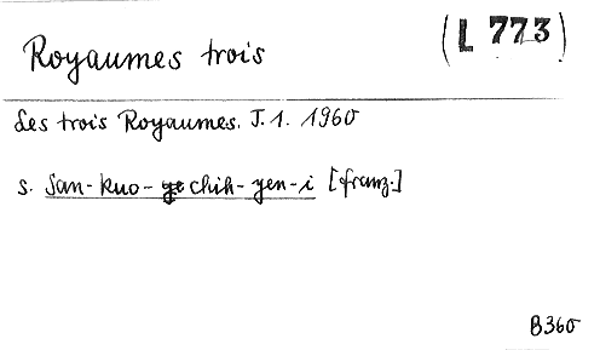 Royaumes trois
(L 773)
Les trois Royaumes. T.1. 1960
s. San-kuo-chih-yen-i [franz.]
B360